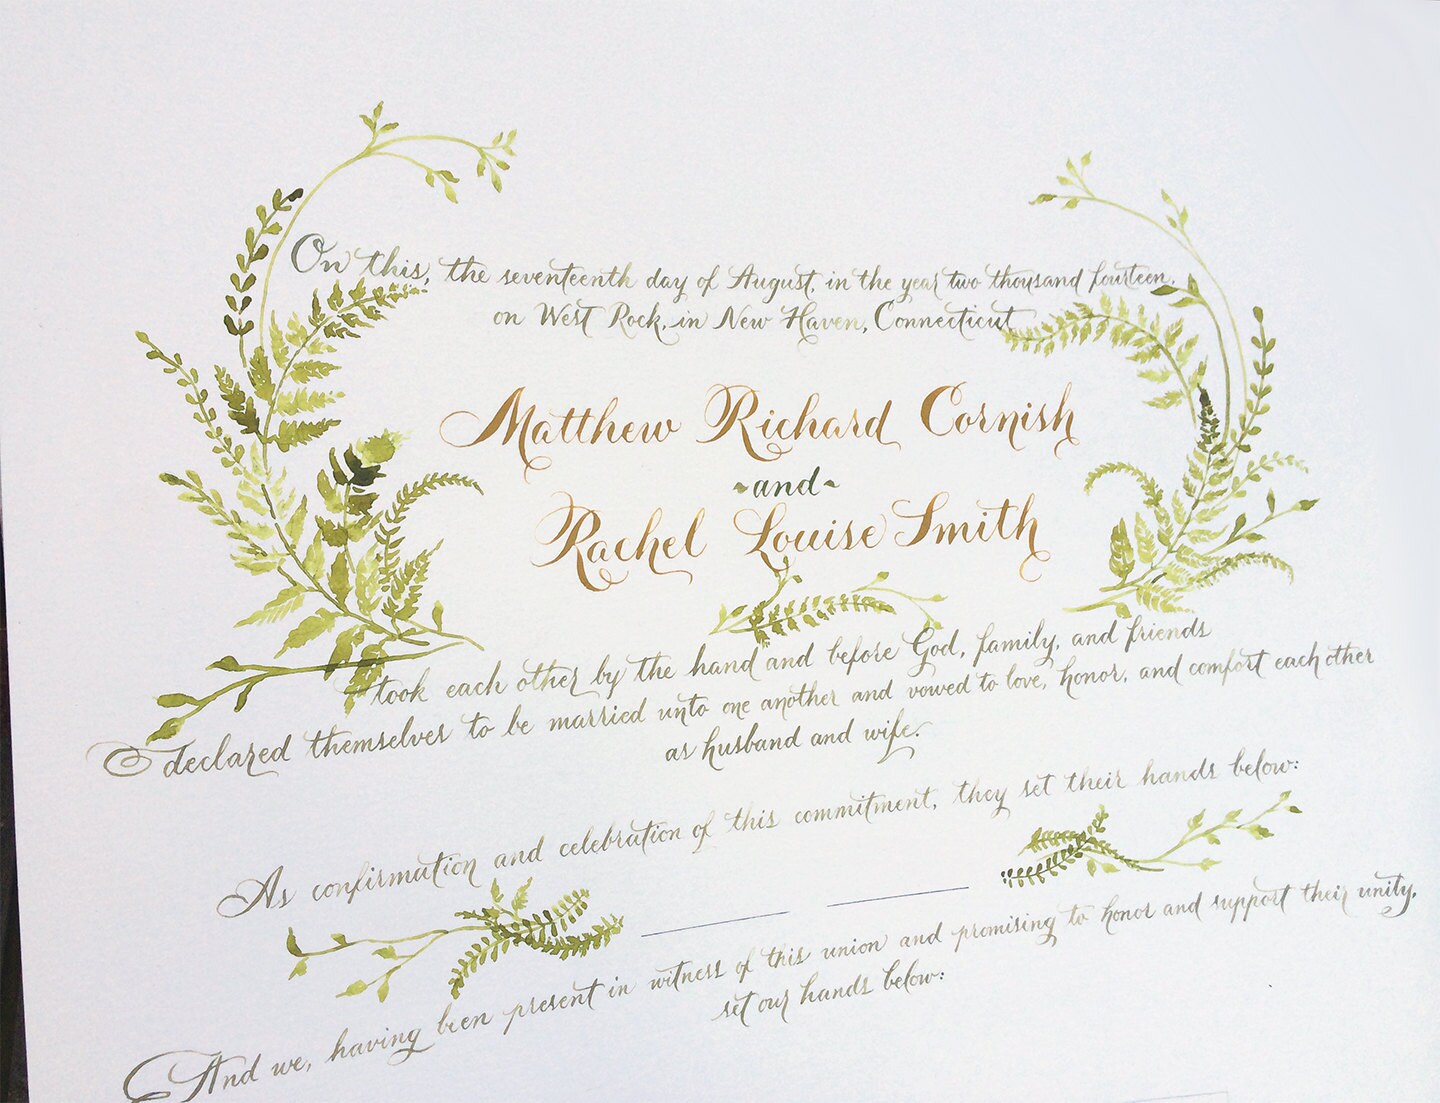 On this, the seventeenth day of August, in the year two thousand fourteen,
on West Rock, in New Haven, Connecticut
Matthew Richard Cornish
~and~
Rachel Louise Smith
took each other by the hand and before God, family, and friends
declared themselves to be married unto one another and vowed to love, honor, and comfort each other
as husband and wife.
As confirmation and celebration of this commitment, they set their hands below:
And we, having been present in witness of this union and promising to honor and support their unity,
set our hands below: